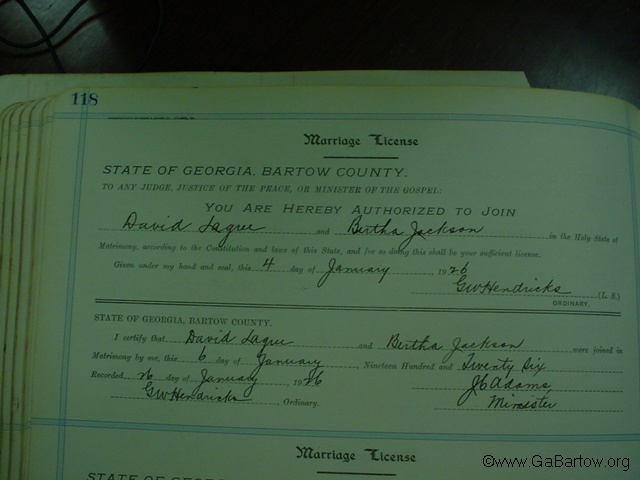 118
Marriage License
STATE OF GEORGIA, BARTOW COUNTY.
TO ANY JUDGE, JUSTICE OF THE PEACE, OR MINISTER OF THE GOSPEL:
YOU ARE HEREBY AUTHORIZED TO JOIN
David Lagree and Bertha Jackson in the Holy State of
Matrimony, according to the Constitution and laws of this State, and for so doing this shall be your sufficient license.
Given under my hand and seal, this 4 day of January, 1926
GW Hendricks (L. S.)
ORDINARY.
STATE OF GEORGIA, BARTOW COUNTY.
I certify that David Lagree and Bertha Jackson were joined in
Matrimony by me, this 6 day of January, Nineteen Hundred and Twenty Six
Recorded 26 day of January 1926 Adams
GW Hendricks, Ordinary. Minister
Marriage License
STATE OF GEORGIA
©www.GaBartow.org